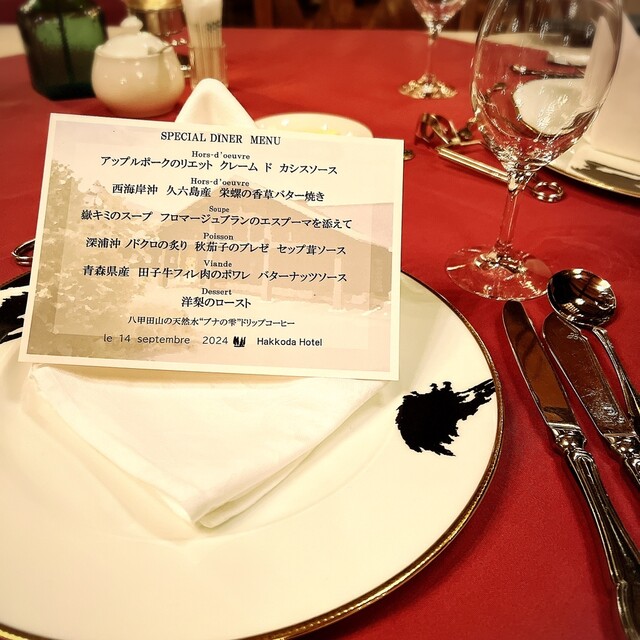 SPECIAL DINER MENU
Hors-d'oeuvre
アップルポークのリエット クレーム ド カシスソース
Hors-d'oeuvre
西海岸沖 久六島産 栄螺の香草バター焼き
Soupe
嶽キミのスープ フロマージュブランのエスプーマを添えて
Poisson
深浦沖 ノドクロの炙り 秋茄子のブレゼ セップ茸ソース
Viande
青森県産 田子牛フィレ肉のポワレ バターナッツソース
Dessert
洋梨のロースト
八甲田山の天然水“ブナの雫”ドリップコーヒー
le 14 septembre 2024 Hakkoda Hotel